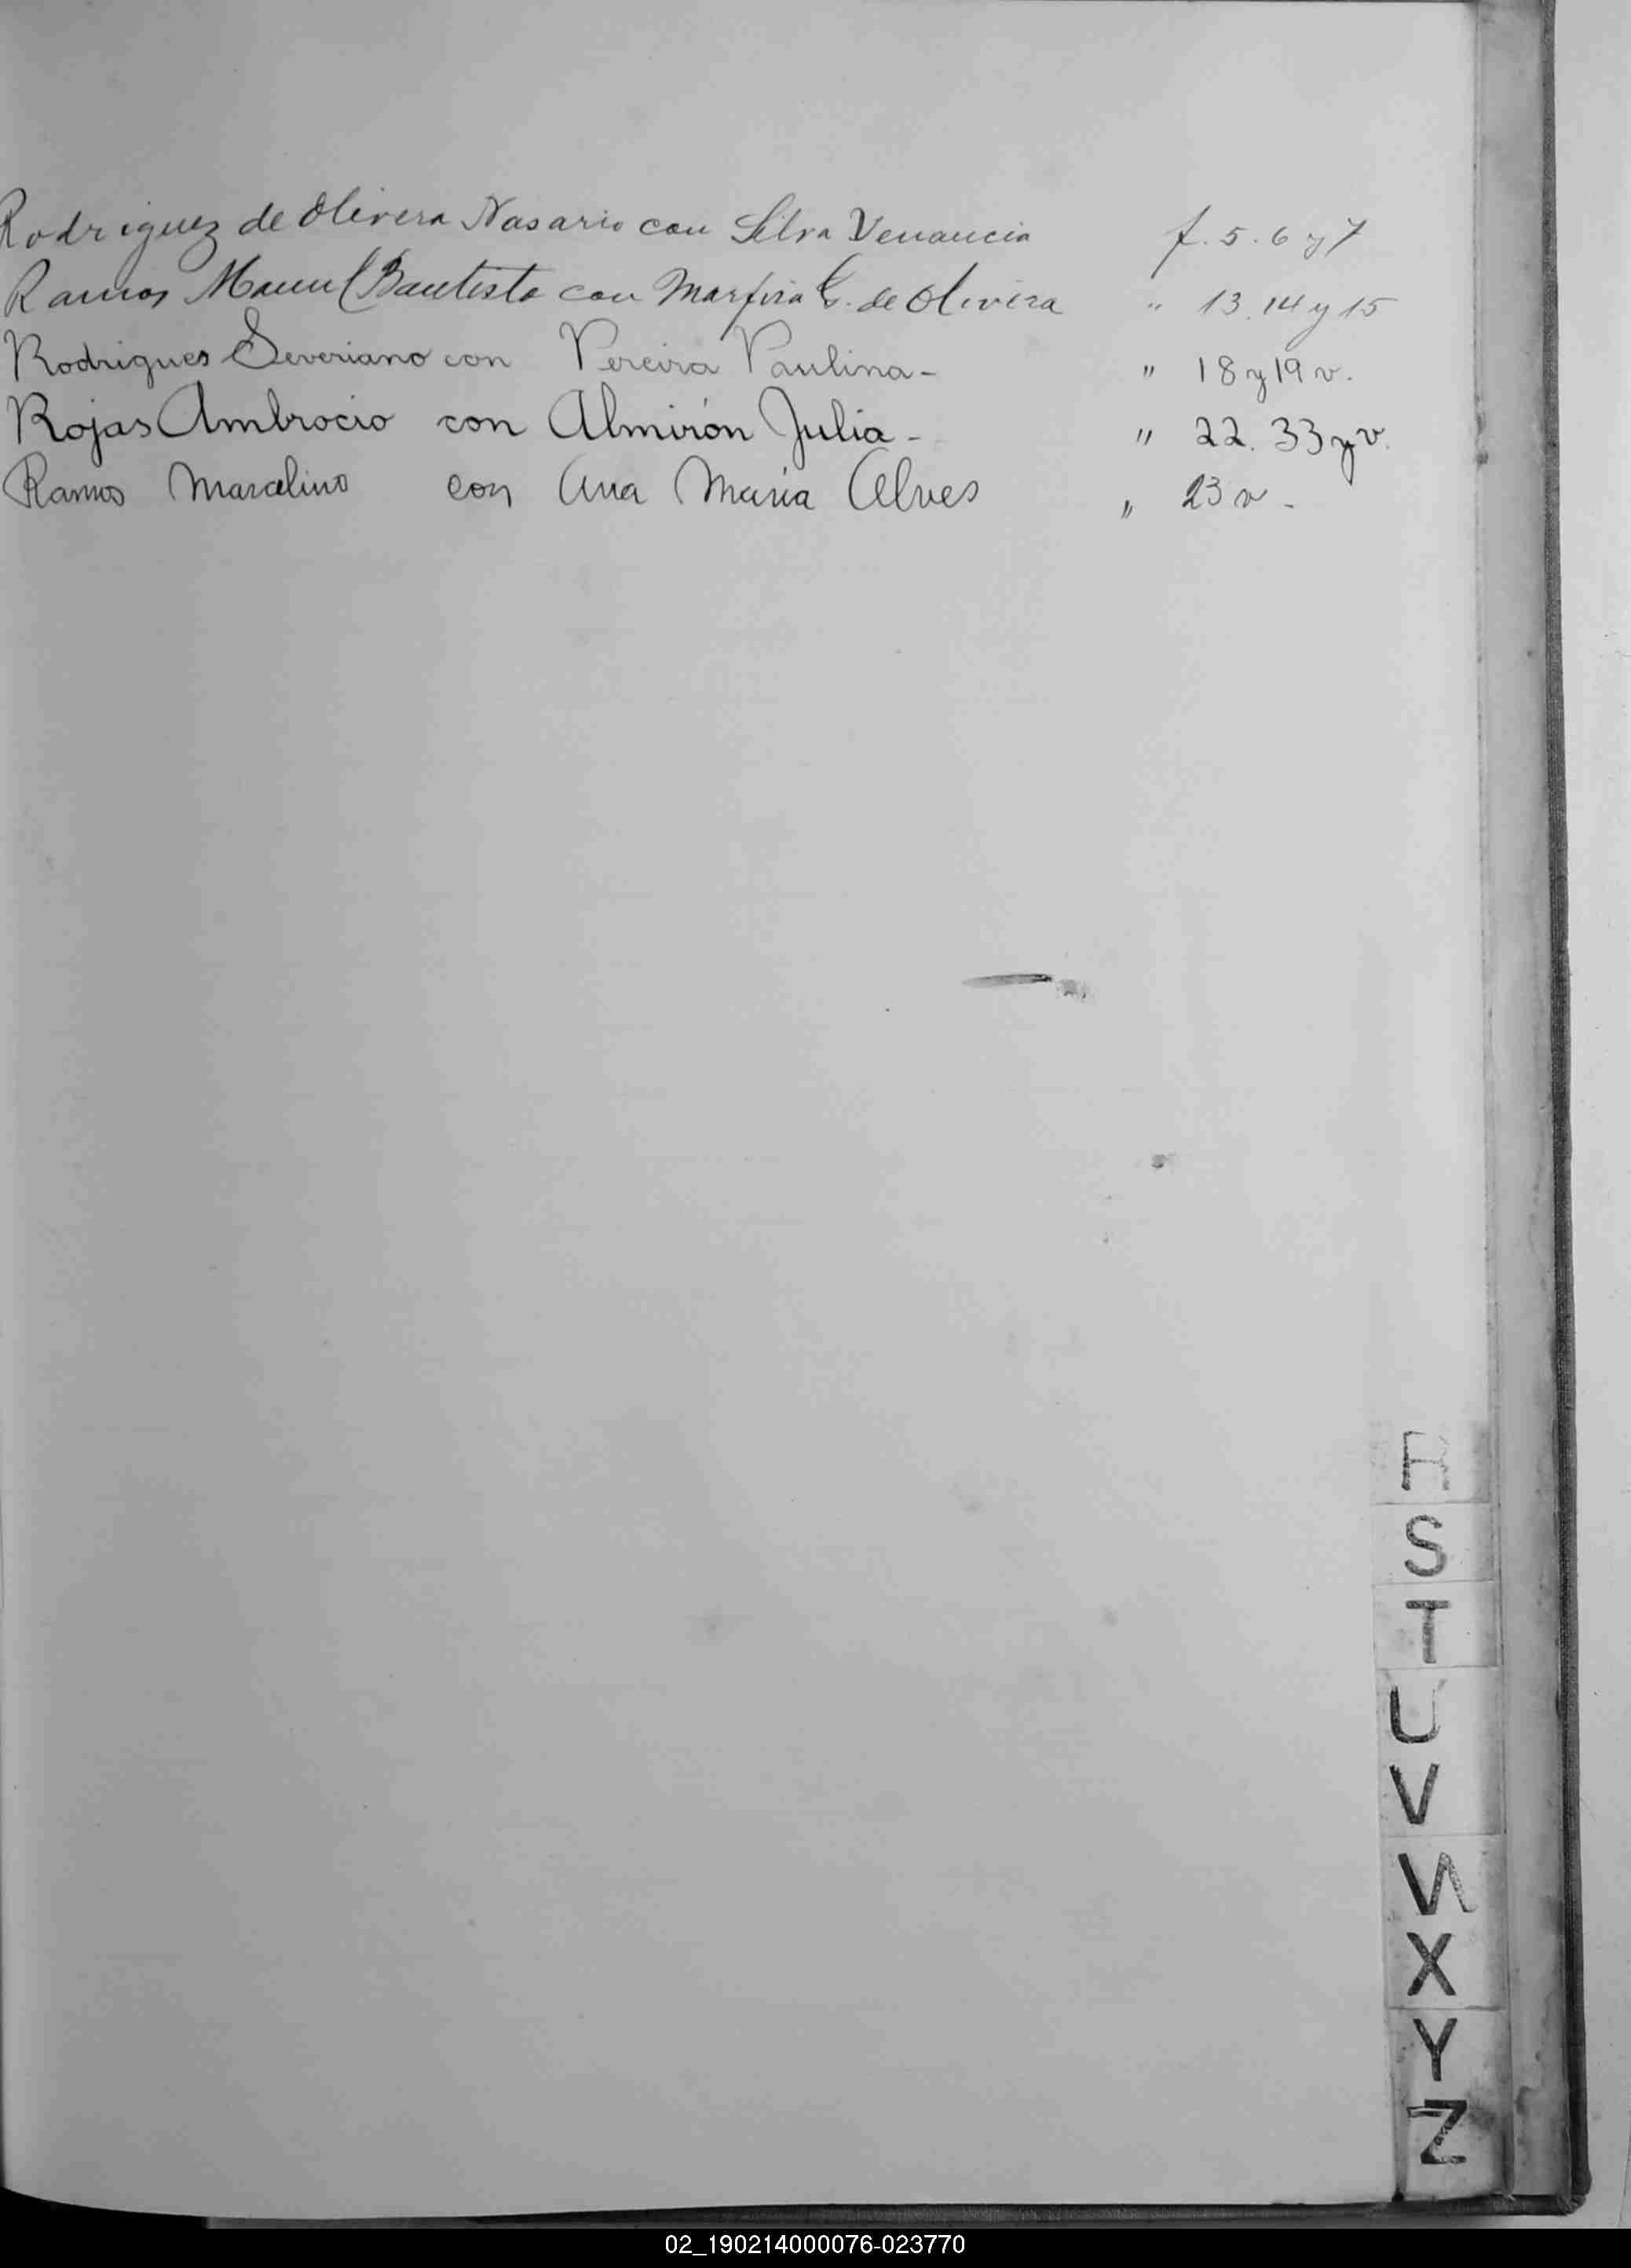 Rodriguez de Olivera Nasario con Silva Venancia f. 5. 6 y 7
Ramos Manuel Bautista con Marfisa G. de Olivera " 13. 14 y 15
Rodrigues Severiano con Pereira Paulina- " 18 y 19 v.
Rojas Ambrocio con Almirón Julia- " 22. 33 y v.
Ramos Marcelino con Ana Maria Alves " 23 v -
R
S
T
U
V
W
X
Y
Z
02_190214000076-023770